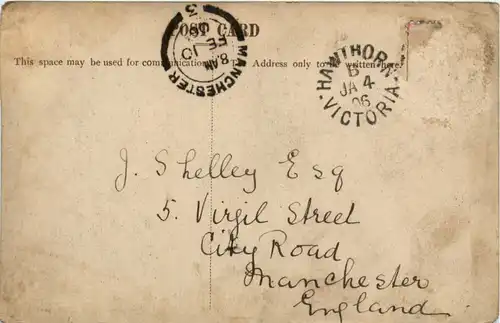 POST CARD
This space may be used for communication
The Address only to be written here.
MANCHESTER
3
8 AM
FE 10
06
HAWTHORN
B
JA 4
06
VICTORIA
J. Shelley Esq
5. Virgil Street
City Road
Manchester
England